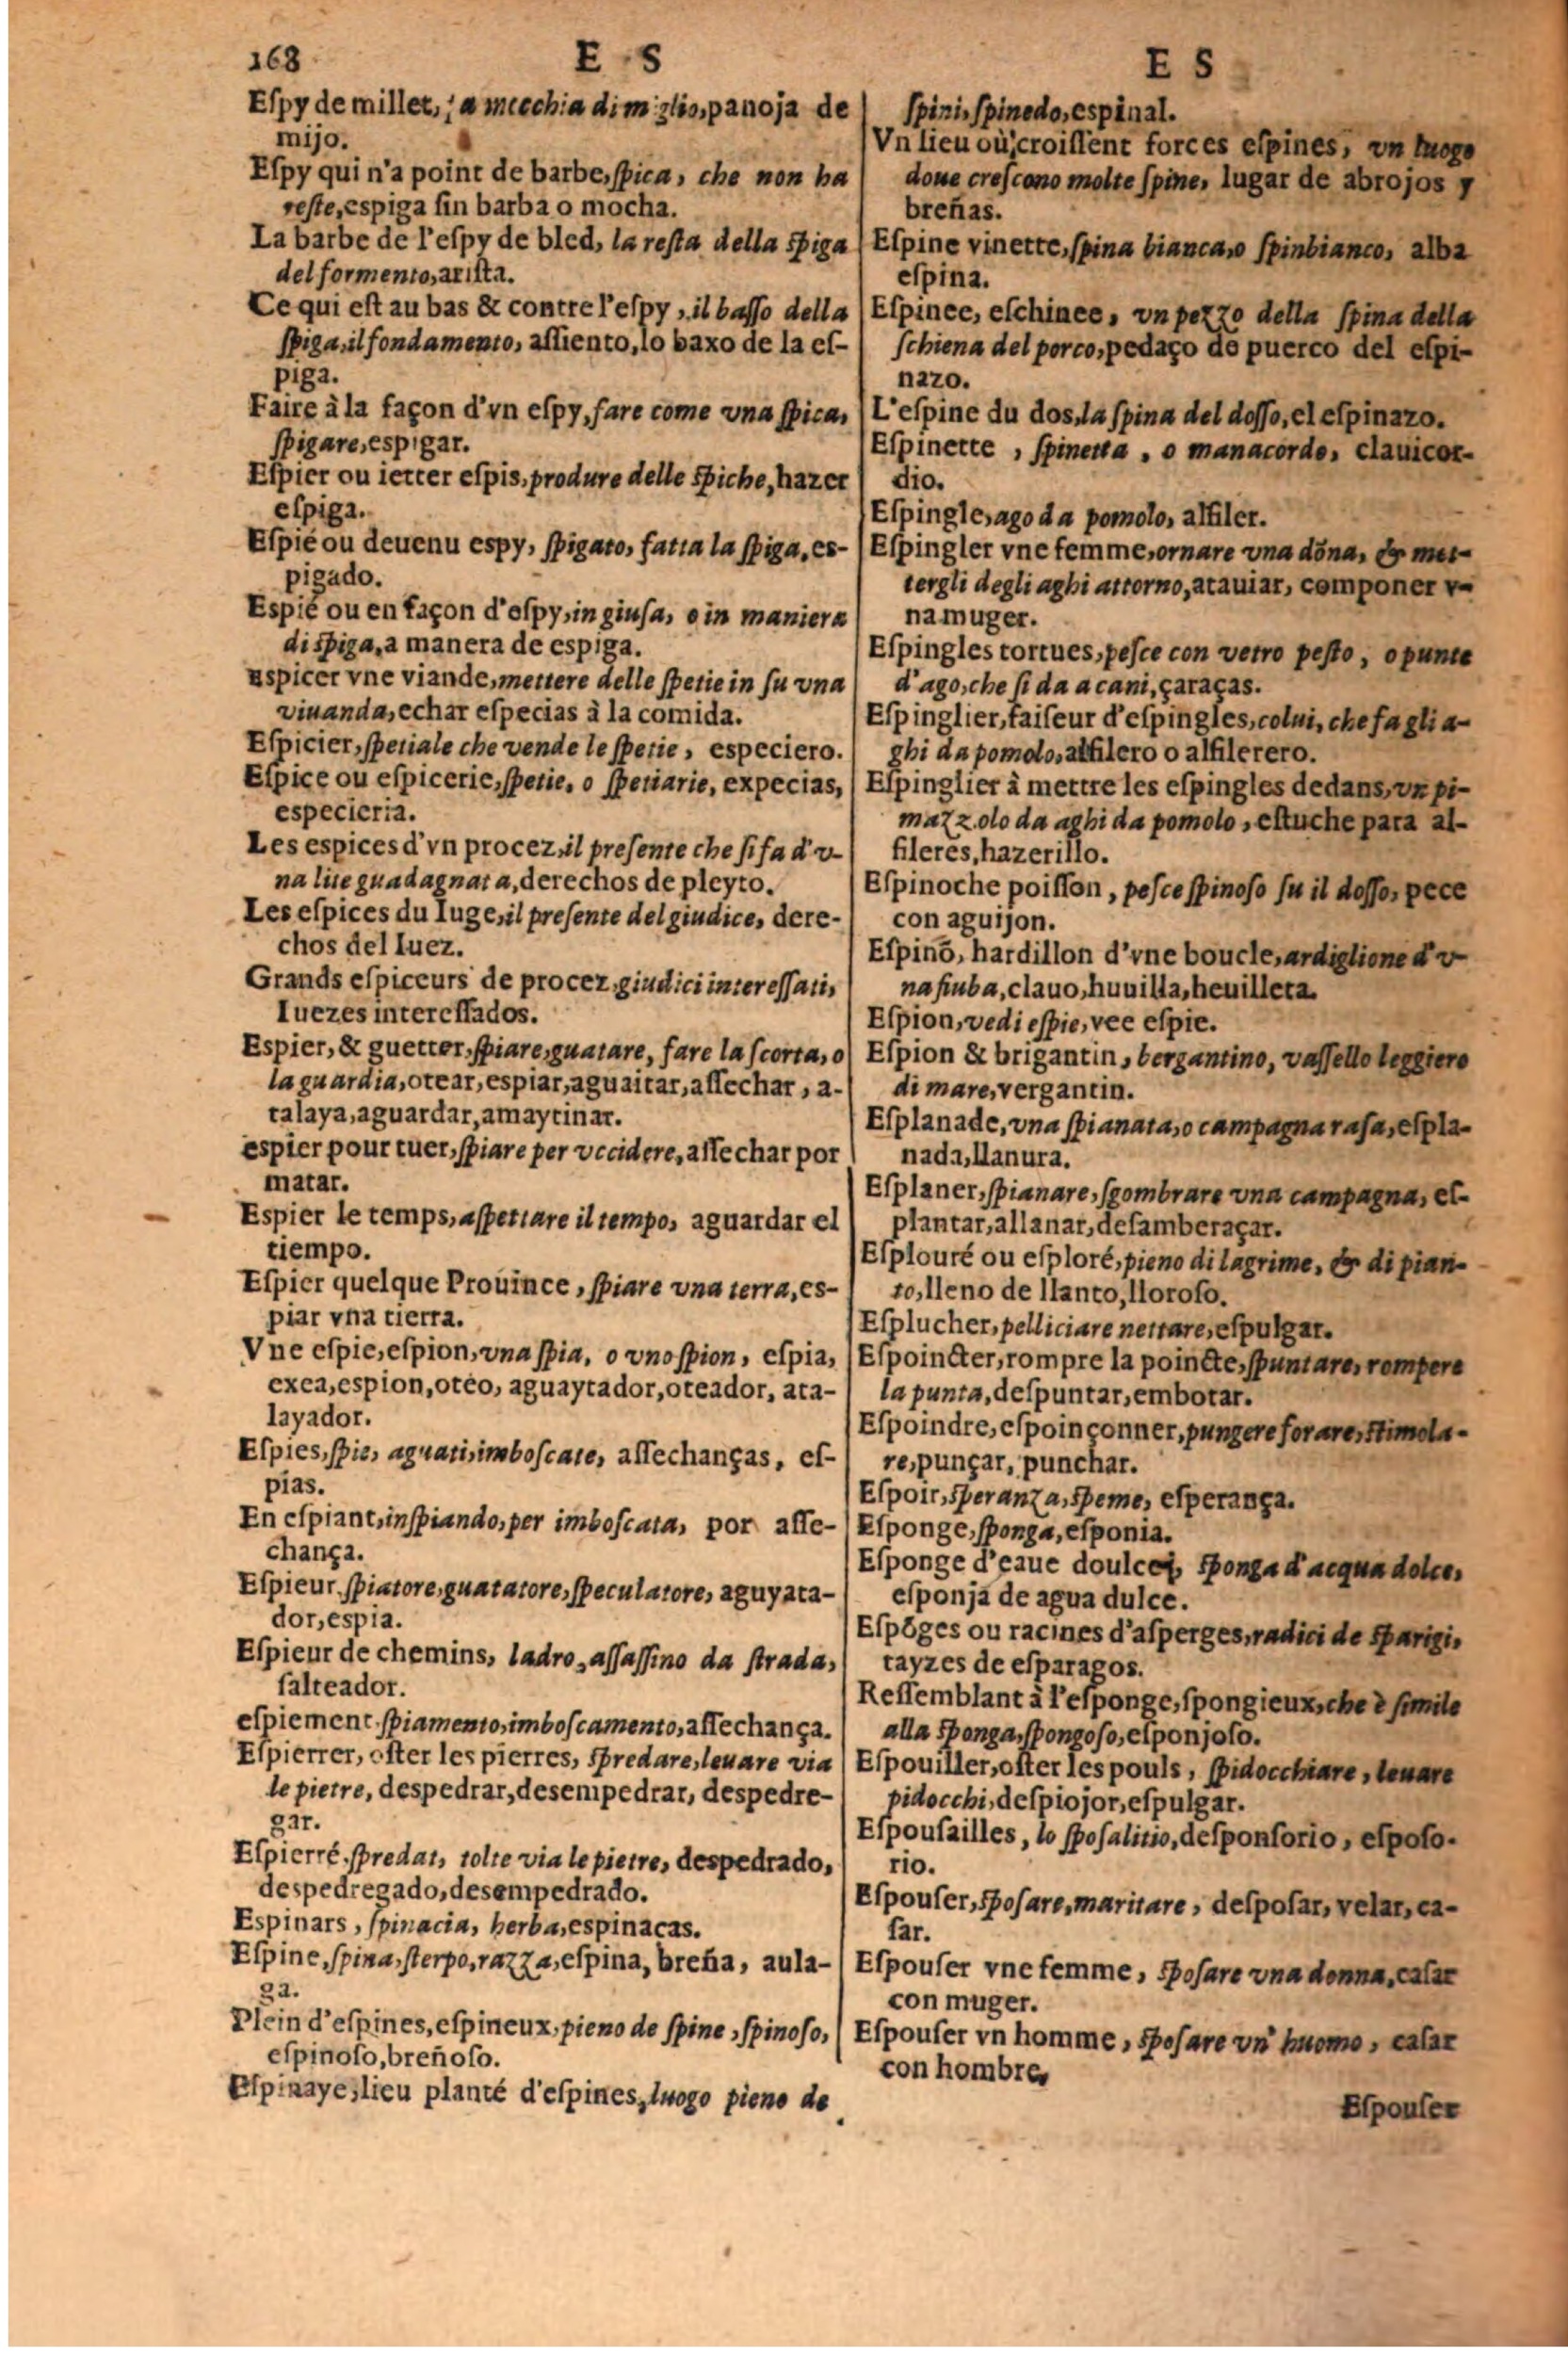 168 E S
Eſpy de millet, la mecchia di miglio, panoja de
mijo.
Eſpy qui n'a point de barbe, ſpica, che non ha
reſte, eſpiga ſin barba o mocha.
La barbe de l'eſpy de bled, la reſta della ſpiga
del formento, ariſta.
Ce qui eſt au bas & contre l'eſpy, il baſſo della
ſpiga, il fondamento, aſſiento, lo baxo de la eſ-
piga.
Faire à la façon d'vn eſpy, fare come vna ſpica,
ſpigare, espigar.
Eſpier ou ietter eſpis, produre delle ſpiche, hazer
eſpiga.
Eſpié ou deuenu espy, ſpigato, fatta la ſpiga, es-
pigado.
Espié ou en façon d'eſpy, in giuſa, o in maniera
di ſpiga, a manera de espiga.
Espicer vne viande, mettere delle ſpetie in ſu vna
viuanda, echar eſpecias à la comida.
Eſpicier, ſpetiale che vende le ſpetie, especiero.
Eſpice ou eſpicerie, ſpetie, o ſpetiarie, expecias,
especieria.
Les espices d'vn procez, il preſente che ſi fa d'v-
na lite guadagnata, derechos de pleyto.
Les eſpices du Iuge, il preſente del giudice, dere-
chos del Iuez.
Grands eſpiceurs de procez, giudici intereſſati,
Iuezes intereſſados.
Espier, & guetter, ſpiare, guatare, fare la ſcorta, o
la guardia, otear, espiar, aguaitar, aſſechar, a-
talaya, aguardar, amaytinar.
espier pour tuer, ſpiare per vccidere, aſſechar por
matar.
Espier le temps, aſpettare il tempo, aguardar el
tiempo.
Eſpier quelque Prouince, ſpiare vna terra, es-
piar vna tierra.
Vne eſpie, eſpion, vna ſpia, o vno ſpion, eſpia,
exea, espion, oteo, aguaytador, oteador, ata-
layador.
Eſpies, ſpie, aguati, imboſcate, aſſechanças, eſ-
pias.
En eſpiant, inſpiando, per imboſcata, por aſſe-
chança.
Eſpieur, ſpiatore, guatatore, ſpeculatore, aguyata-
dor, espia.
Eſpieur de chemins, ladro, aſſaſſino da ſtrada,
ſalteador.
eſpiement, ſpiamento, imboſcamento, aſſechança.
Eſpierrer, oſter les pierres, ſpredare, leuare via
le pietre, despedrar, desempedrar, despedre-
gar.
Eſpierré, ſpredat, tolte via le pietre, despedrado,
despedregado, desempedrado.
Espinars, ſpinacia, herba, espinacas.
Eſpine, ſpina, ſterpo, razza, eſpina, breña, aula-
ga.
Plein d'eſpines, eſpineux, pieno de ſpine, ſpinoſo,
eſpinoſo, breñoſo.
Eſpinaye, lieu planté d'eſpines, luogo pieno de
E S
ſpini, ſpinedo, espinal.
Vn lieu où croiſſent forces eſpines, vn luogo
doue creſcono molte ſpine, lugar de abrojos y
breñas.
Eſpine vinette, ſpina bianca, o ſpinbianco, alba
eſpina.
Eſpinee, eſchinee, vn pezzo della ſpina della
ſchiena del porco, pedaço de puerco del eſpi-
nazo.
L'eſpine du dos, la ſpina del doſſo, el eſpinazo.
Eſpinette, ſpinetta, o manacordo, clauicor-
dio.
Eſpingle, ago da pomolo, alfiler.
Eſpingler vne femme, ornare vna dōna, & met-
tergli degli aghi attorno, atauiar, componer v-
na muger.
Eſpingles tortues, peſce con vetro peſto, o punte
d'ago, che ſi da a cani, çaraças.
Eſpinglier, faiſeur d'eſpingles, colui, che fa gli a-
ghi da pomolo, alfilero o alfilerero.
Eſpinglier à mettre les eſpingles dedans, vn pi-
mazzolo da aghi da pomolo, eſtuche para al-
fileres, hazerillo.
Eſpinoche poiſſon, peſce ſpinoſo ſu il doſſo, pece
con aguijon.
Eſpinō, hardillon d'vne boucle, ardiglione d'v-
na fiuba, clauo, huuilla, heuilleta.
Eſpion, vedi eſpie, vee eſpie.
Eſpion & brigantin, bergantino, vaſſello leggiero
di mare, vergantin.
Eſplanade, vna ſpianata, o campagna raſa, eſpla-
nada, llanura.
Eſplaner, ſpianare, ſgombrare vna campagna, eſ-
plantar, allanar, deſamberaçar.
Eſplouré ou eſploré, pieno di lagrime, & di pian-
to, lleno de llanto, lloroſo.
Eſplucher, pelliciare nettare, eſpulgar.
Eſpoincter, rompre la poincte, ſpuntare, rompere
la punta, deſpuntar, embotar.
Eſpoindre, eſpoinçonner, pungere forare, ſtimola-
re, punçar, punchar.
Eſpoir, ſperanza, ſpeme, eſperança.
Eſponge, ſponga, eſponia.
Eſponge d'eaue doulce, ſponga d'acqua dolce,
eſponja de agua dulce.
Eſpōges ou racines d'aſperges, radici de ſparigi,
rayzes de eſparagos.
Reſſemblant à l'eſponge, ſpongieux, che è ſimile
alla ſponga, ſpongoſo, eſponjoſo.
Eſpouiller, oſter les pouls, ſpidocchiare, leuare
pidocchi, deſpiojor, eſpulgar.
Eſpouſailles, lo ſpoſalitio, deſponſorio, eſpoſo-
rio.
Eſpouſer, ſpoſare, maritare, deſpoſar, velar, ca-
ſar.
Eſpouſer vne femme, ſpoſare vna donna, caſar
con muger.
Eſpouſer vn homme, ſpoſare vn' huomo, caſar
con hombre,
Eſpouſer